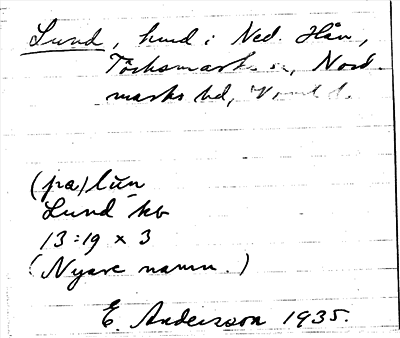 Lund, hmd i Ned. Hån,
Töcksmarks sn, Nord-
marks hd, Vrml l.
(pa) lun
Lund kb
13:19 x 3
(Nyare namn.)
E. Andersson 1935.